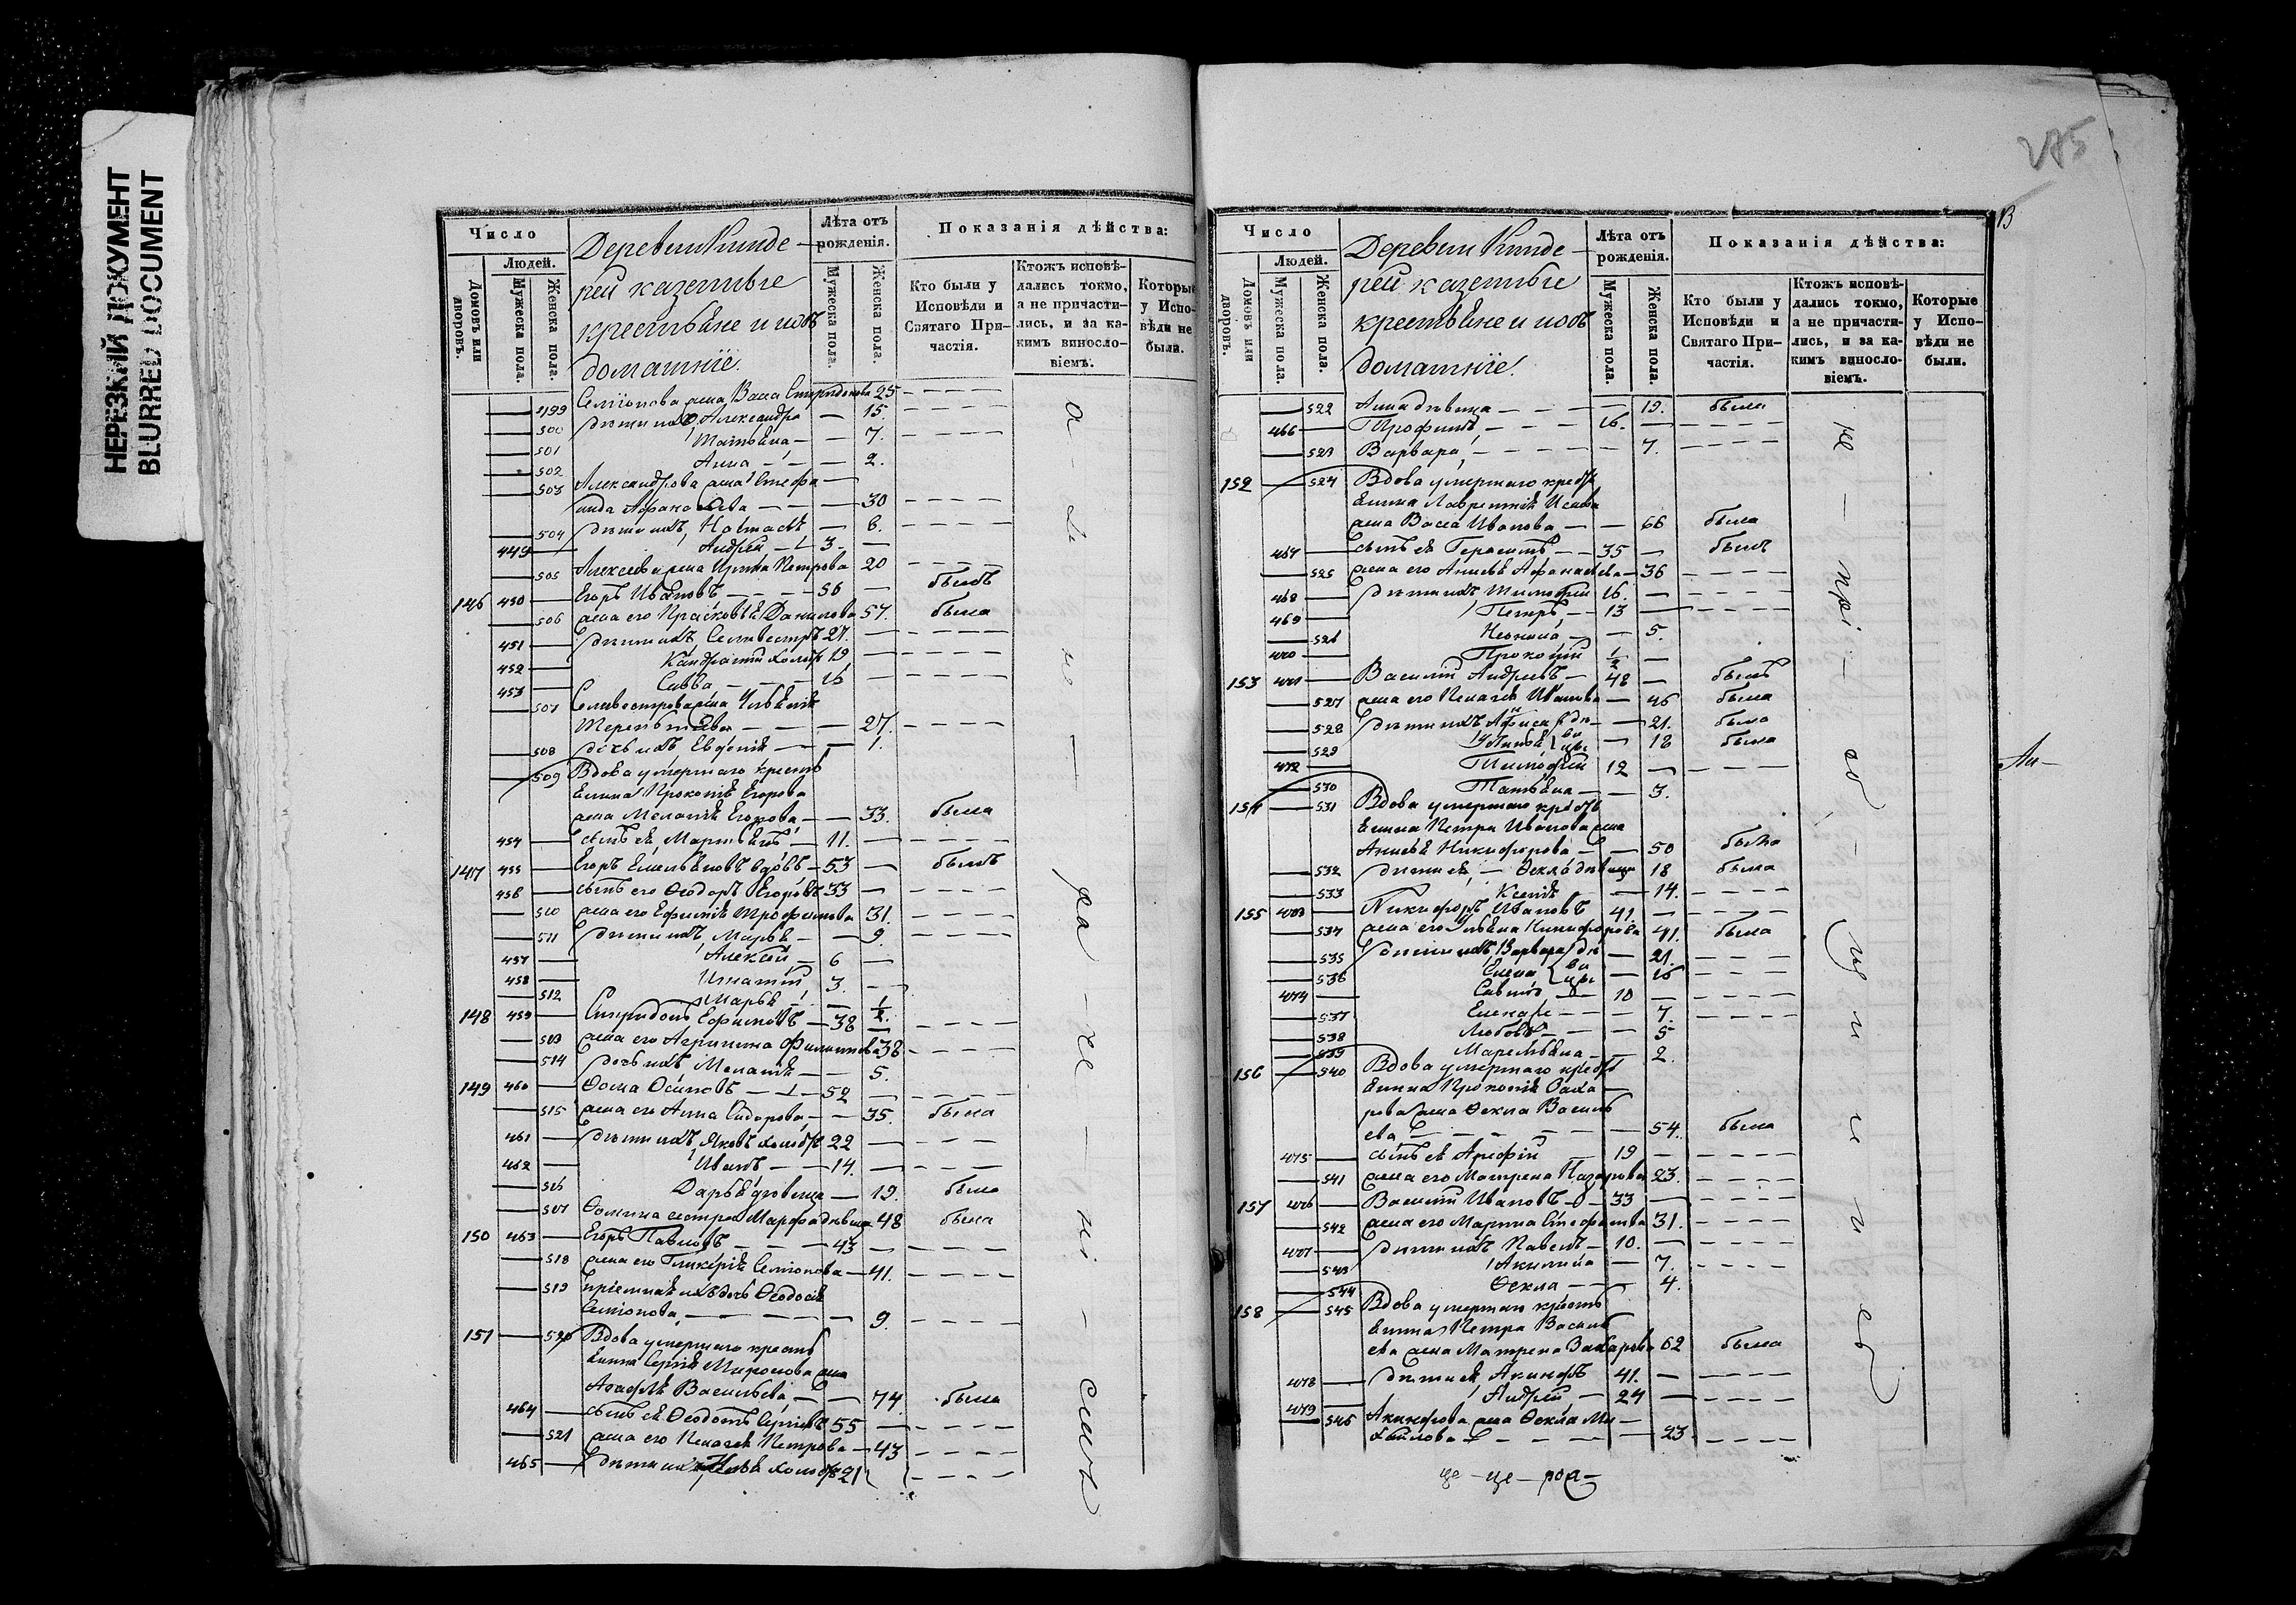 НЕРЕЗКИЙ ДОКУМЕНТ
BLURRED DOCUMENT
285
13
Число
Людей.
Домовъ или дворовъ.
Мужеска пола.
Женска пола.
Деревни Кинде-
рей казенные
крестьяне и ихъ
домашніе.
Лѣта отъ рожденія.
Мужеска пола.
Женска пола.
Показанія дѣйства:
Кто были у Исповѣди и Святаго При-частія.
Ктожъ исповѣ-дались токмо, а не причасти-лись, и за ка-кимъ винословіемъ.
Которые у Испо-вѣди не были.
499 Семіонова жена Васса Спиридонова 25
500 дѣти ихъ Александра — 15
501 Татьяна — 7.
502 Анна — 2.
503 Александрова жена Стефа-
нида Афанасьева — 30
504 дѣти ихъ, Наталья — 6.
449 Андрей — 3
505 Алексѣева жена Ирина Петрова 20
146 450 Егоръ Ивановъ — 56 былъ
506 жена его Прасковья Данилова 57. была
451 дѣти ихъ Селивестръ 27.
452 Кандратій холостъ 19
453 Савва — 16
507 Селивестрова жена Ульянія
Терентьева — 27.
508 дочь ихъ Евфимія — 1.
509 Вдова умершаго кресть
янина Прокопія Егорова
жена Меланія Егорова — 33. была
454 сынъ ея Мартьянъ — 11.
147 455 Егоръ Емельяновъ вдовъ — 53 былъ
456 сынъ его Ѳеодоръ Егоровъ 33
510 жена его Ефимія Трофимова 31.
511 дѣти ихъ, Марья — 9.
457 Алексѣй — 6
458 Игнатій 3.
512 Марья — 1/2.
148 459 Спиридонъ Ефимовъ — 38
513 жена его Агрипина Филиппова 38
514 дочь ихъ Меланія — 5.
149 460 Ѳома Осиповъ — 52
515 жена его Анна Сидорова — 35. была
461 дѣти ихъ, Яковъ холостъ 22
462 Иванъ — 14.
516 Дарья дѣвица — 19. была
517 Ѳомина сестра Марфа дѣвица 48 была
150 463 Егоръ Павловъ — 43
518 жена его Гликерія Семіонова — 41.
519 пріемная ихъ дочь Ѳеодосія
Семіонова — 9.
151 520 Вдова умершаго кресть
янина Сергія Миронова жена
Агафья Васильева — 74. была
464 сынъ ея Ѳеодотъ Сергіевъ 55
521 жена его Пелагея Петрова — 43
465 дѣти ихъ Илья холостъ 21
Число
Людей.
Домовъ или дворовъ.
Мужеска пола.
Женска пола.
Деревни Кинде-
рей казенные
крестьяне и ихъ
домашніе.
Лѣта отъ рожденія.
Мужеска пола.
Женска пола.
Показанія дѣйства:
Кто были у Исповѣди и Святаго При-частія.
Ктожъ исповѣ-дались токмо, а не причасти-лись, и за ка-кимъ винословіемъ.
Которые у Испо-вѣди не были.
522 Анна дѣвица — 19. была
466 Трофимъ — 16.
523 Варвара — 7.
152 524 Вдова умершаго кресть
янина Лаврентія Исаева
жена Васса Иванова — 66 была
467 сынъ ея Герасимъ — 35 былъ
525 жена его Анисья Афанасьева — 36
468 дѣти ихъ Тимофей 16.
469 Петръ — 13
526 Неонила — 5.
470 Прокопій 1/2
153 471 Василій Андреевъ — 48 былъ
527 жена его Пелагея Иванова — 46 была
528 дѣти ихъ Анфиса дѣ- 21. была
529 Улита вицы 18 была
472 Тимофей 12
530 Татьяна — 3.
154 531 Вдова умершаго кресть
янина Петра Иванова жена
Анисья Никифорова — 50 была
532 дѣти ея, — Ѳекла дѣвица 18 была
533 Ксенія — 14.
155 473 Никифоръ Ивановъ 41.
534 жена его Ульяна Никифорова 41. была
535 дѣти ихъ, Варвара дѣ- 21.
536 Елена вицы 16
474 Савинъ — 10
537 Гликерія — 7.
538 Любовь — 5
539 Маремьяна — 2.
156 540 Вдова умершаго кресть
янина Прокопія Заха-
рова жена Ѳекла Василь
ева — 54. была
475 сынъ ея Арефій 19
541 жена его Матрена Назарова 23.
157 476 Василій Ивановъ — 33
542 жена его Марина Стефанова 31.
477 дѣти ихъ Павелъ — 10.
543 Акилина — 7.
544 Ѳекла — 4.
158 545 Вдова умершаго кресть
янина Петра Василь
ева жена Матрена Захарова 62 была
478 дѣти ея Акинфъ 41.
479 Андрей — 24
546 Акинфова жена Ѳекла Ми-
хайлова — 23